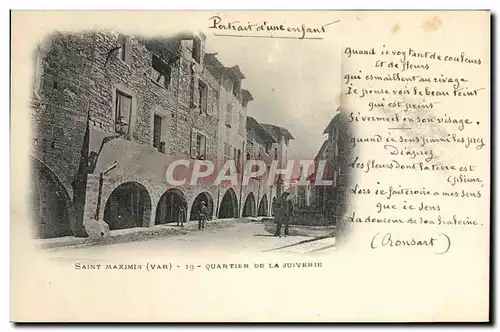 Portrait d'une enfant
Quand ie voy tant de couleurs
Et de fleurs
qui esmaillent un rivage
Ie pense voir le beau teint
qui est peint
Si vermeil en son visage.
Quand ie sens parmi les prez
Diaprez
Les fleurs dont la terre est
pleine
Lors ie fait croire a mes sens
que ie sens
La douceur de son haleine.
(Ronsart)
CPARAMA
SAINT MAXIMIN (VAR) - 19 - QUARTIER DE LA JUIVERIE